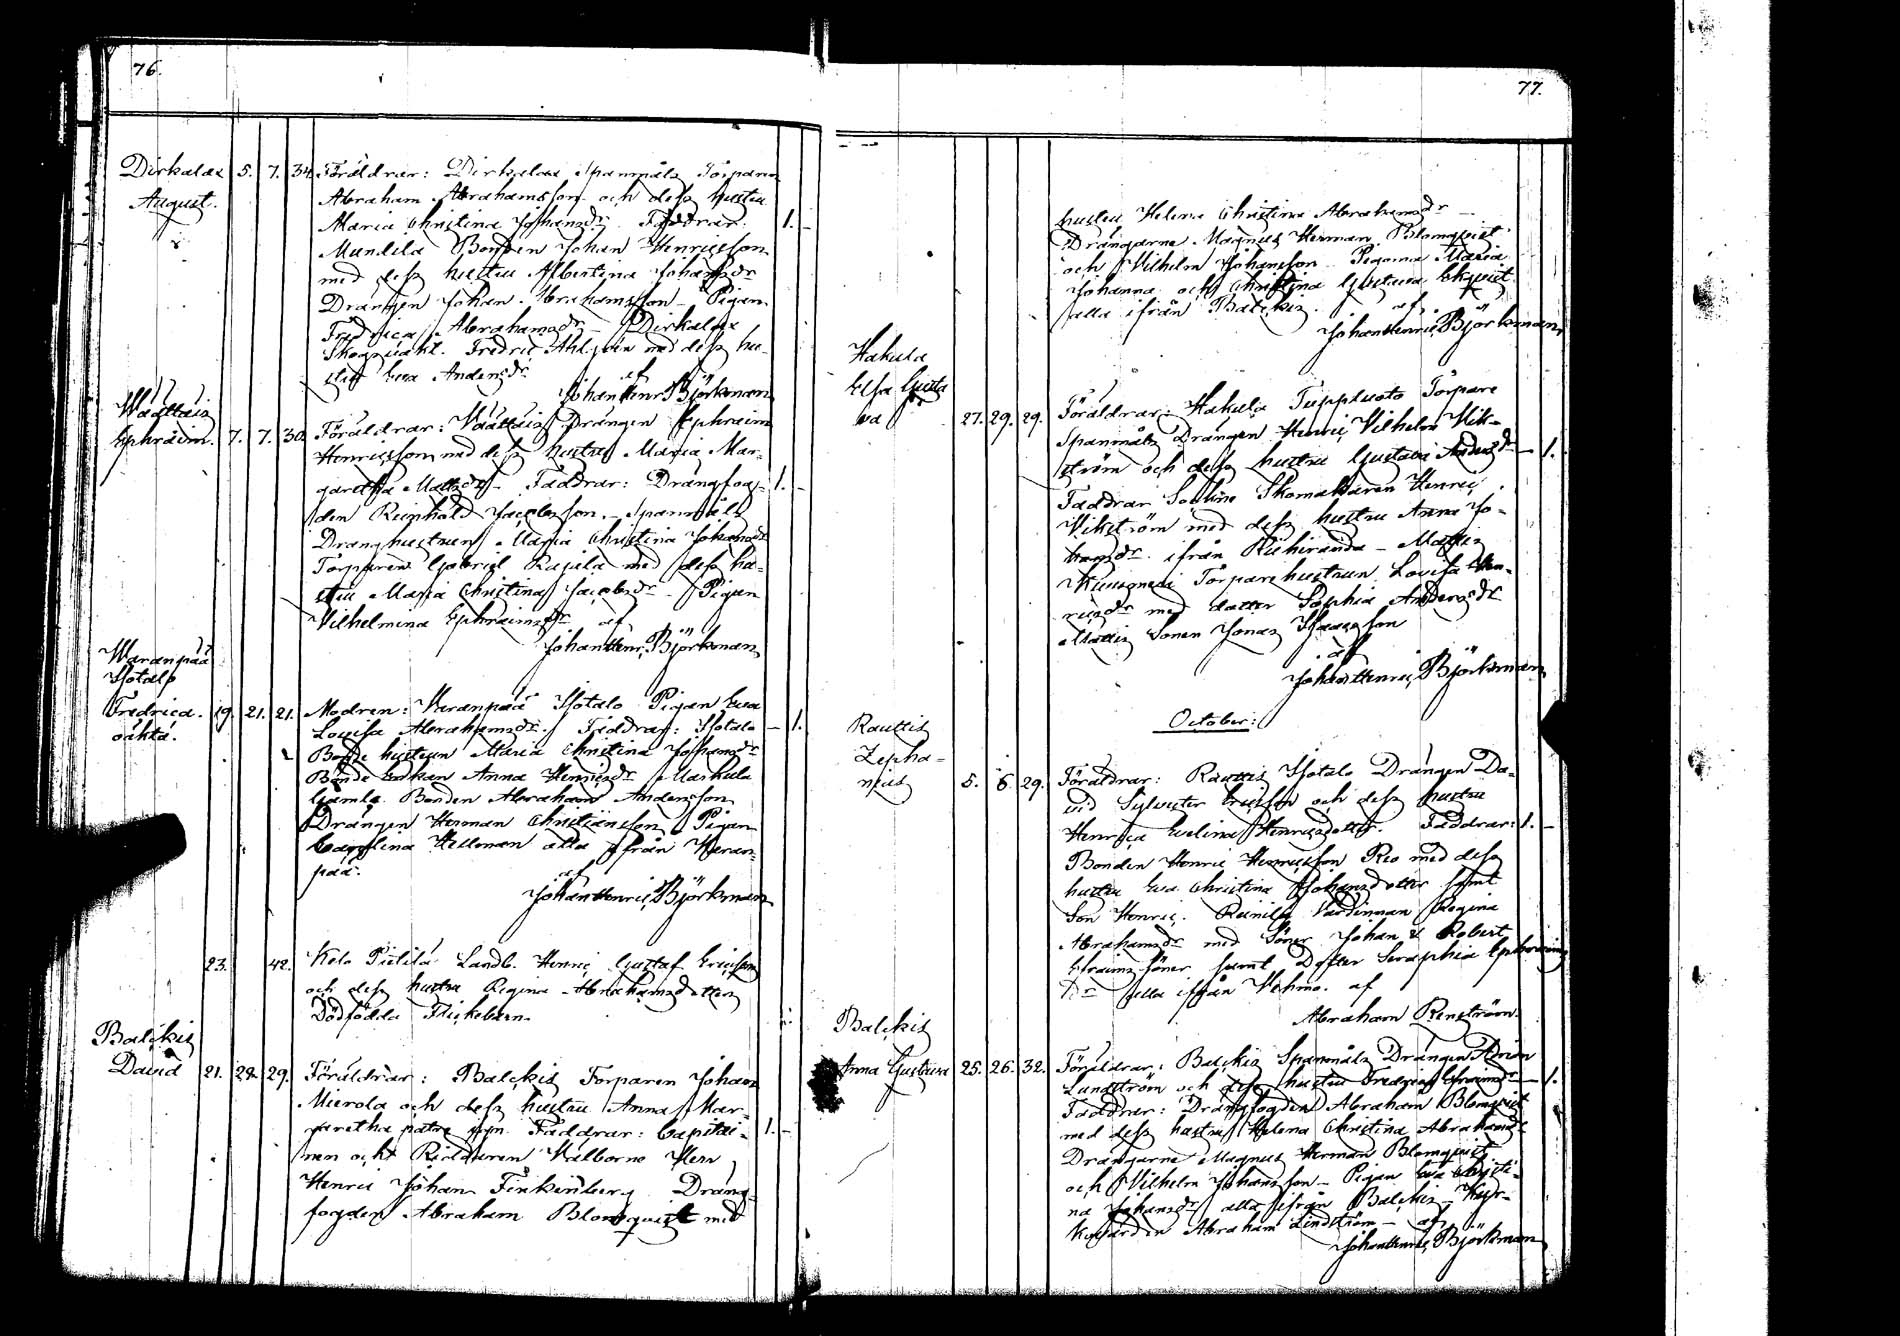 76.
Dirkalax 5. 7. 34. Föräldrar: Dirkalax Spanmåls Torparen
August. Abraham Abrahamsson och dess hustru
Maria Christina Johansdr Faddrar: 1. -
Mundila Bonden Johan Henricsson
med dess hustru Albertina Johansdr
Drängen Johan Abrahamsson - Pigan
Fredrica Abrahamsdr - Dirkalax
Skogvakt. Fredric med dess hu-
stru Eva Andersdr
af
Johan Henr. Björkman
Wäättäis
Ephraim. 7. 7. 30. Föräldrar: Wäättäis Drängen Ephraim
Henricsson med dess hustru Maria Mar-
garetha Mattsdr - Faddrar: Drängfog- 1. -
den Reinhold Jacobsson - Spanmåls
Dränghustrun Maria Christina Johansdr
Torparen Gabriel Rajala med dess hu-
stru Maria Christina Jacobsdr - Pigan
Vilhelmina Ephraimsdr af
Johan Henr. Björkman
Waranpää
Isotalo
Fredrica. 19. 21. 21. Modren: Waranpää Isotalo Pigan Eva
oäkta. Lovisa Abrahamsdr. Faddrar: Isotalo - 1.
Bonde hustrun Maria Christina Johansdr
Bonde Enkan Anna Henricsdr Markula
Gamla Bonden Abraham Andersson
Drängen Herman Christiansson Pigan
Carolina Hellman alla ifrån Waran-
pää.
af
Johan Henric Björkman
23. 42. Kolo Pietilä Landb. Henric Gustaf Ericsson
och dess hustru Regina Abrahamsdotters
Dödfödda Flickebarn.
Balckis
David 21. 22. 29. Föräldrar: Balckis Torparen Johan
Mierola och dess hustru Anna Mar-
garetha Faddrar: Capitai- 1. -
nen och Riddaren Wälborne Herr
Henric Johan Finkenberg Dräng-
fogden Abraham Blomqvist med
77.
hustru Helena Christina Abrahamsdr -
Drängarne Magnus Herman Blomqvist
och Vilhelm Johansson Pigorna Maria
Johanna och Christina Gustava Ekqvist
alla ifrån Balckis. af
Johan Henric Björkman
Hakula
Elsa Gusta
va 27. 29. 29. Föräldrar: Hakula Tuppluoto Torpare
Spanmåls Drängen Henric Vilhelm Wik-
ström och dess hustru Gustava Andersdr - 1.
Faddrar Skomakaren Henric
Vikström med dess hustru Anna Jo-
hansdr. ifrån - Mattis
Torparehustrun Lovisa Hen-
ricsdr med dotter Sophia Andersdr
Mattis Sonen Jonas Isaacsson
af
Johan Henric Björkman
October:
Rauttis
Zepha-
nias 5. 6. 29. Föräldrar: Rauttis Isotalo Drängen Da-
vid Sylvester Ericsson och dess hustru
Henrica Evelina Henricsdotter. Faddrar: 1. -
Bonden Henric Henricsson Rio med dess
hustru Eva Christina Johansdotter samt
Son Henric. Reinilä Värdinnan Regina
Abrahamsdr med Söner Johan & Robert
Efraims söner samt Dotter Seraphia Ephraims
dr alla ifrån Vehmo. af
Abraham Renström.
Balckis
Anna Gustava 25. 26. 32. Föräldrar: Balckis Spanmåls Drängen Adrian
Lundström och dess hustru Fredrica Efraimsdr - 1.
Faddrar: Drängfogden Abraham Blomqvist
med dess hustru Helena Christina Abrahamsdr
Drängarne Magnus Herman Blomqvist
och Vilhelm Johansson - Pigan Eva Christi-
na Johansdr alla ifrån Balckis - Kyr-
Abraham Lindström - af
Johan Henric Björkman